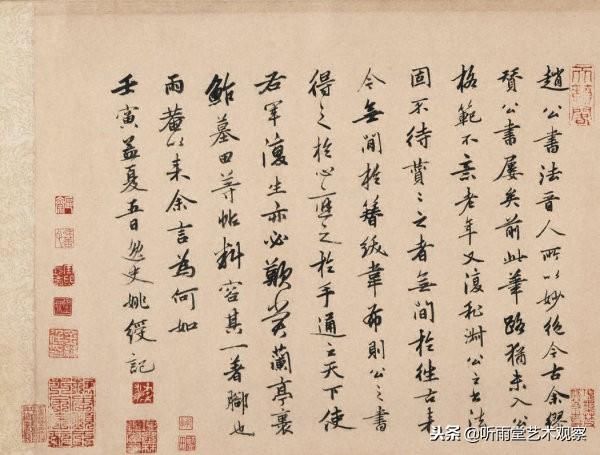 趙公書法晉人所以妙絕今古余繆
賛公書屢矣前此筆路猶未入公
格範不意老年又復私淑公之書法
固不待賛〻之者無間於往古来
今無間於簪紱韋布則公之書
得之於心應之於手通之天下使
右軍復生亦必歎賞蘭亭裹
鮓墓田等帖料容其一著腳也
雨菴以来余言為何如
壬寅孟夏五日逸史姚綬記
头条 @听雨堂艺术观察